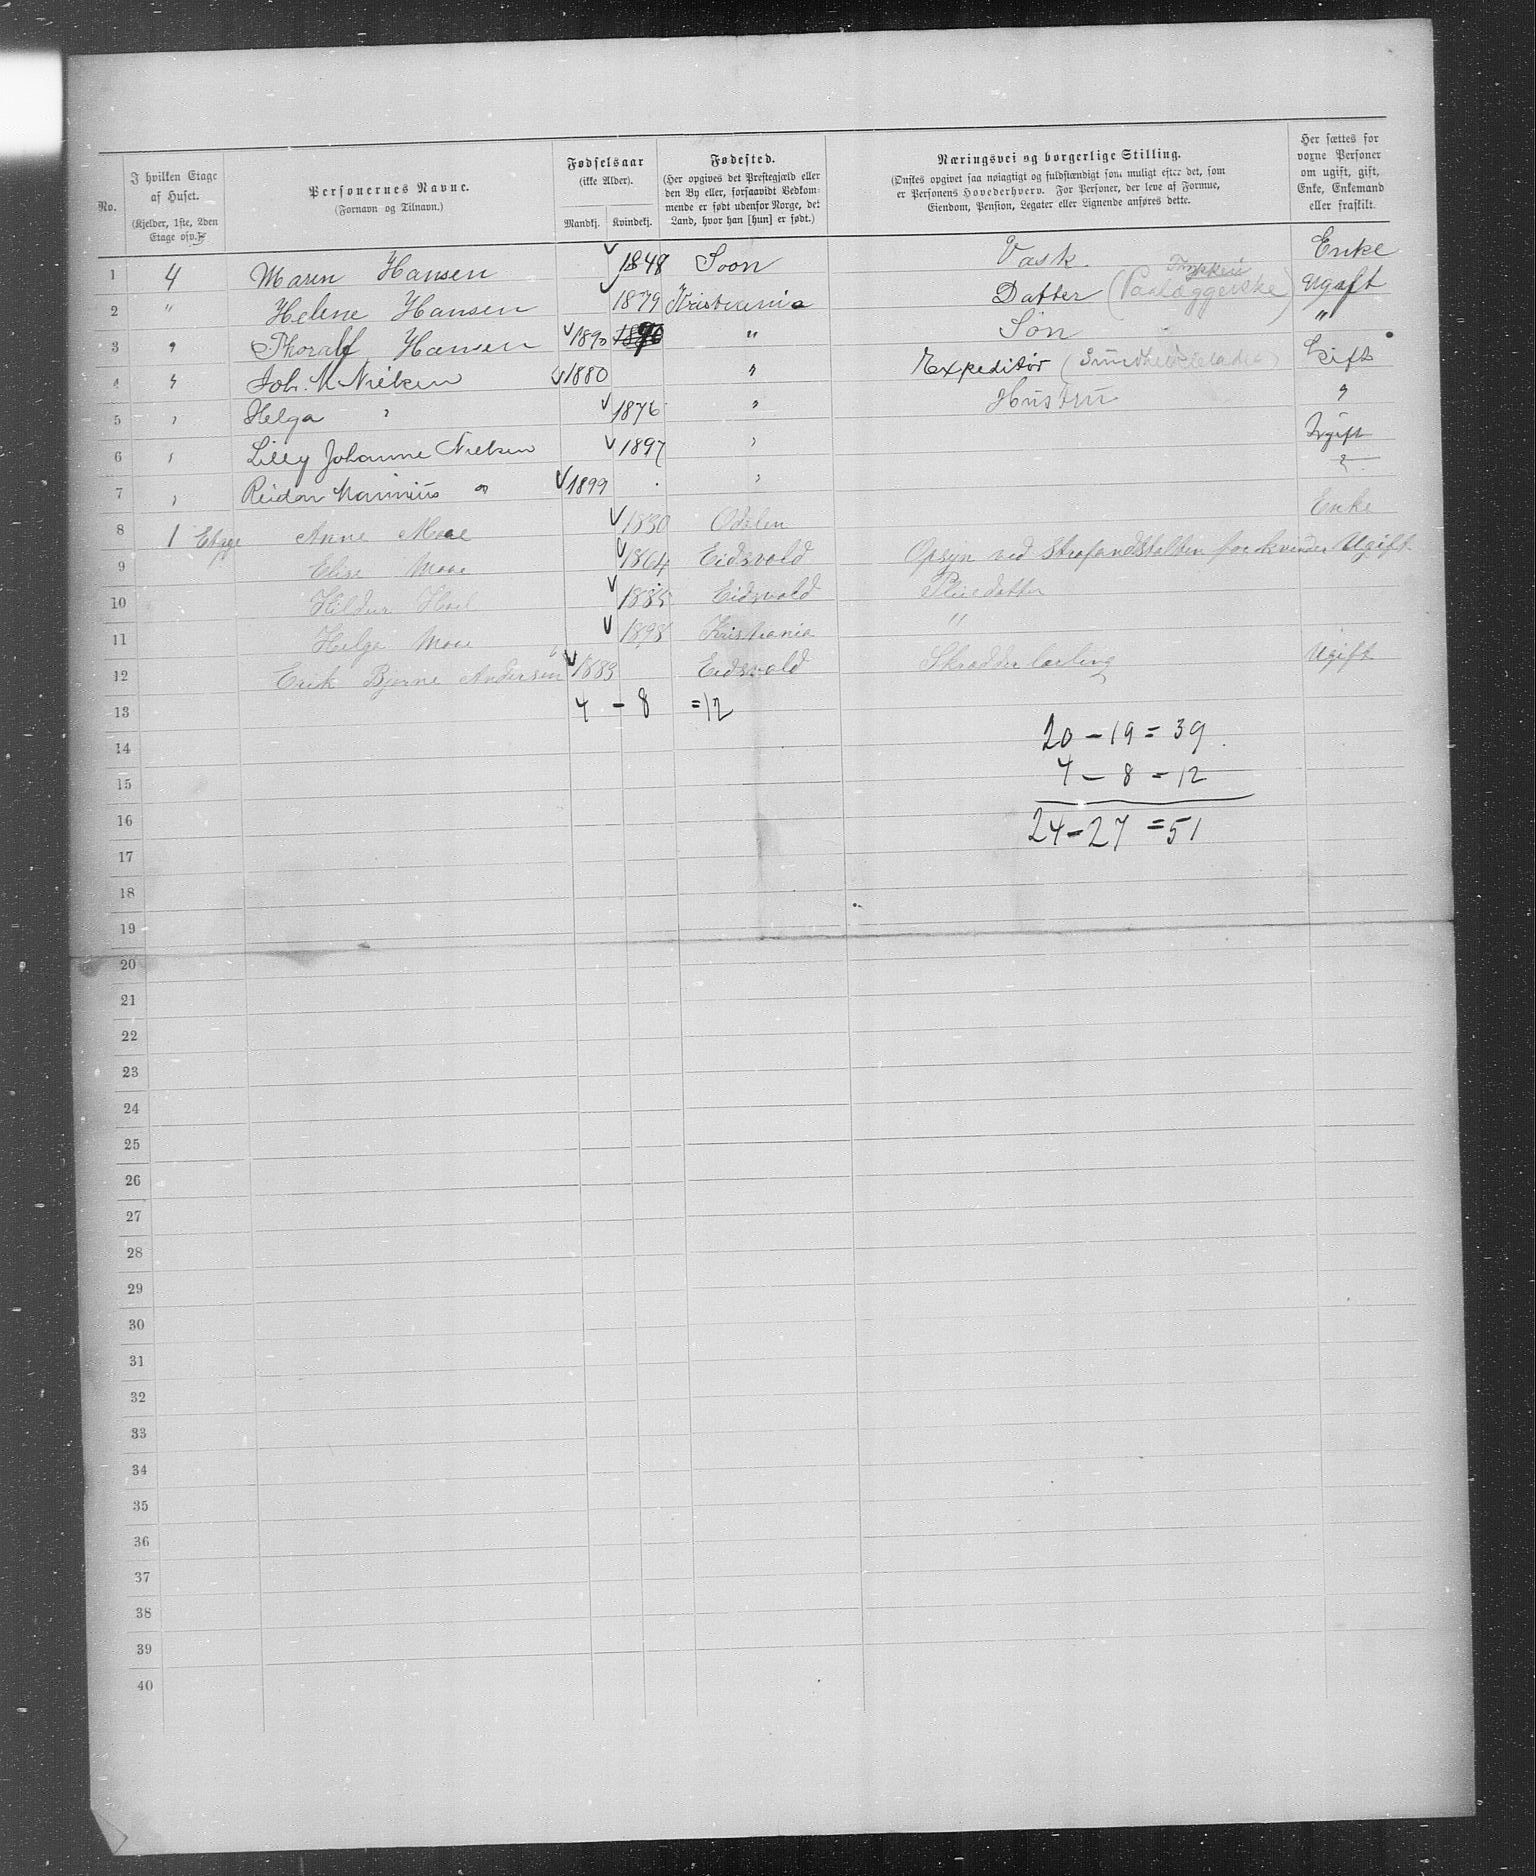 No.
I hvilken Etage af Huset.
(Kjelder, 1ste, 2den Etage osv.)
Personernes Navne.
(Fornavn og Tilnavn.)
Fødselsaar
(ikke Alder).
Mandkj. Kvindekj.
Fødested.
(Her opgives det Prestegjæld eller
den By eller, forsaavidt Vedkom-
mende er født udenfor Norge, det
Land, hvor han [hun] er født.)
Næringsvei og borgerlige Stilling.
(Ønskes opgivet saa nøiagtigt og fuldstændigt som muligt efter det, som
er Personens Hovederhverv. For Personer, der leve af Formue,
Eiendom, Pension, Legater eller Lignende anføres dette.
Her sættes for
voxne Personer
om ugift, gift,
Enke, Enkemand
eller fraskilt.
1 4 Maren Hansen 1848 Soon Vask. Enke
2 " Helene Hansen 1879 Kristiania Datter (Paalæggerske Trykkeri) Ugift
3 " Thoralf Hansen 1890 " Søn "
4 " Joh. M Nielsen 1880 " Expeditør Gift
5 " Helga " 1876 " Hustru "
6 " Lilly Johanne Nielsen 1897 " Ugift
7 " Reidar Marinius " 1899 " "
8 1 Etage Anne Moe 1830 Odalen Enke
9 " Elise Moe 1864 Eidsvold Opsyn ved Strafanstalten for kvinder Ugift
10 Hildur 1885 Eidsvold Pleiedatter
11 Helga Moe 1898 Kristiania "
12 Erik Bjarne Andersen 1883 Eidsvold Skrædderlærling Ugift
13 4 - 8 = 12
14 20 - 19 = 39
15 4 - 8 = 12
16 24 - 27 = 51
17
18
19
20
21
22
23
24
25
26
27
28
29
30
31
32
33
34
35
36
37
38
39
40